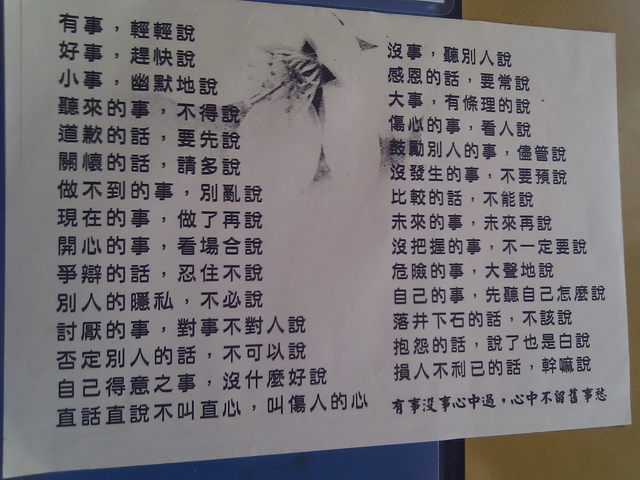 有事，輕輕說
好事，趕快說
小事，幽默地說
聽來的事，不得說
道歉的話，要先說
關懷的話，請多說
做不到的事，別亂說
現在的事，做了再說
開心的事，看場合說
爭辯的話，忍住不說
別人的隱私，不必說
討厭的事，對事不對人說
否定別人的話，不可以說
自己得意之事，沒什麼好說
直話直說不叫直心，叫傷人的心
沒事，聽別人說
感恩的話，要常說
大事，有條理的說
傷心的事，看人說
鼓勵別人的事，儘管說
沒發生的事，不要預說
比較的話，不能說
未來的事，未來再說
沒把握的事，不一定要說
危險的事，大聲地說
自己的事，先聽自己怎麼說
落井下石的話，不該說
抱怨的話，說了也是白說
損人不利已的話，幹嘛說
有事沒事心中過，心中不留舊事愁